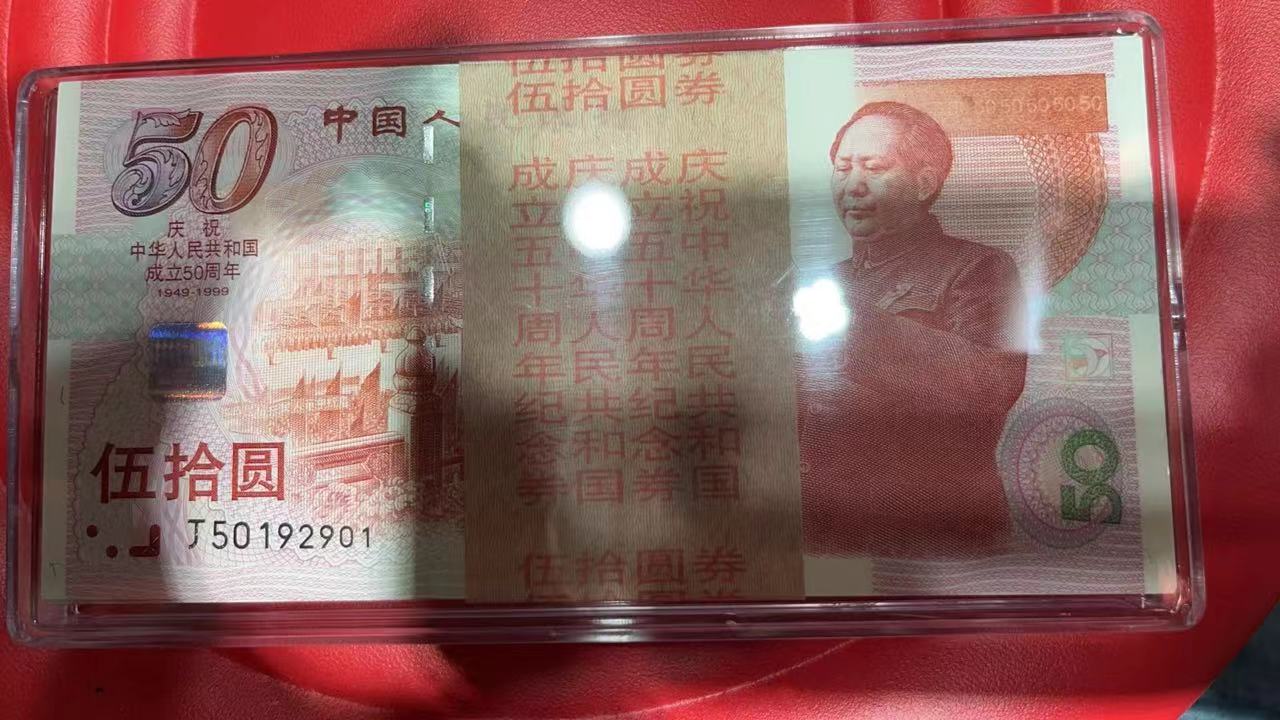 50
中国人
庆祝
中华人民共和国
成立50周年
1949-1999
伍拾圆
J50192901
伍拾圆券
伍拾圆券
庆祝中华人民共和国
成立五十周年纪念券
庆祝中华人民共和国
成立五十周年纪念券
伍拾圆券
50